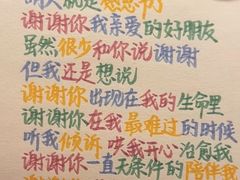 明天就是感恩节
谢谢你我亲爱的好朋友
虽然很少和你说谢谢
但我还是想说
谢谢你出现在我的生命里
谢谢你在我最难过的时候
听我倾诉 哄我开心治愈我
谢谢你一直无条件的陪伴我